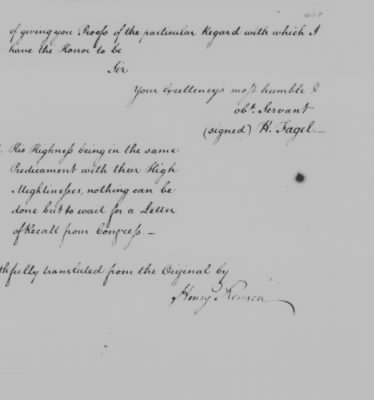 of giving you Proofs of the particular Regard with which I
have the Honor to be
Sir
Your Excellency's most humble &
obt. Servant
(signed) H. Fagel.—
His Highness being in the same
Predicament with their High
Mightinesses, nothing can be
done but to wait for a Letter
of Recall from Congress —
thfully translated from the Original by
Henry Remsen